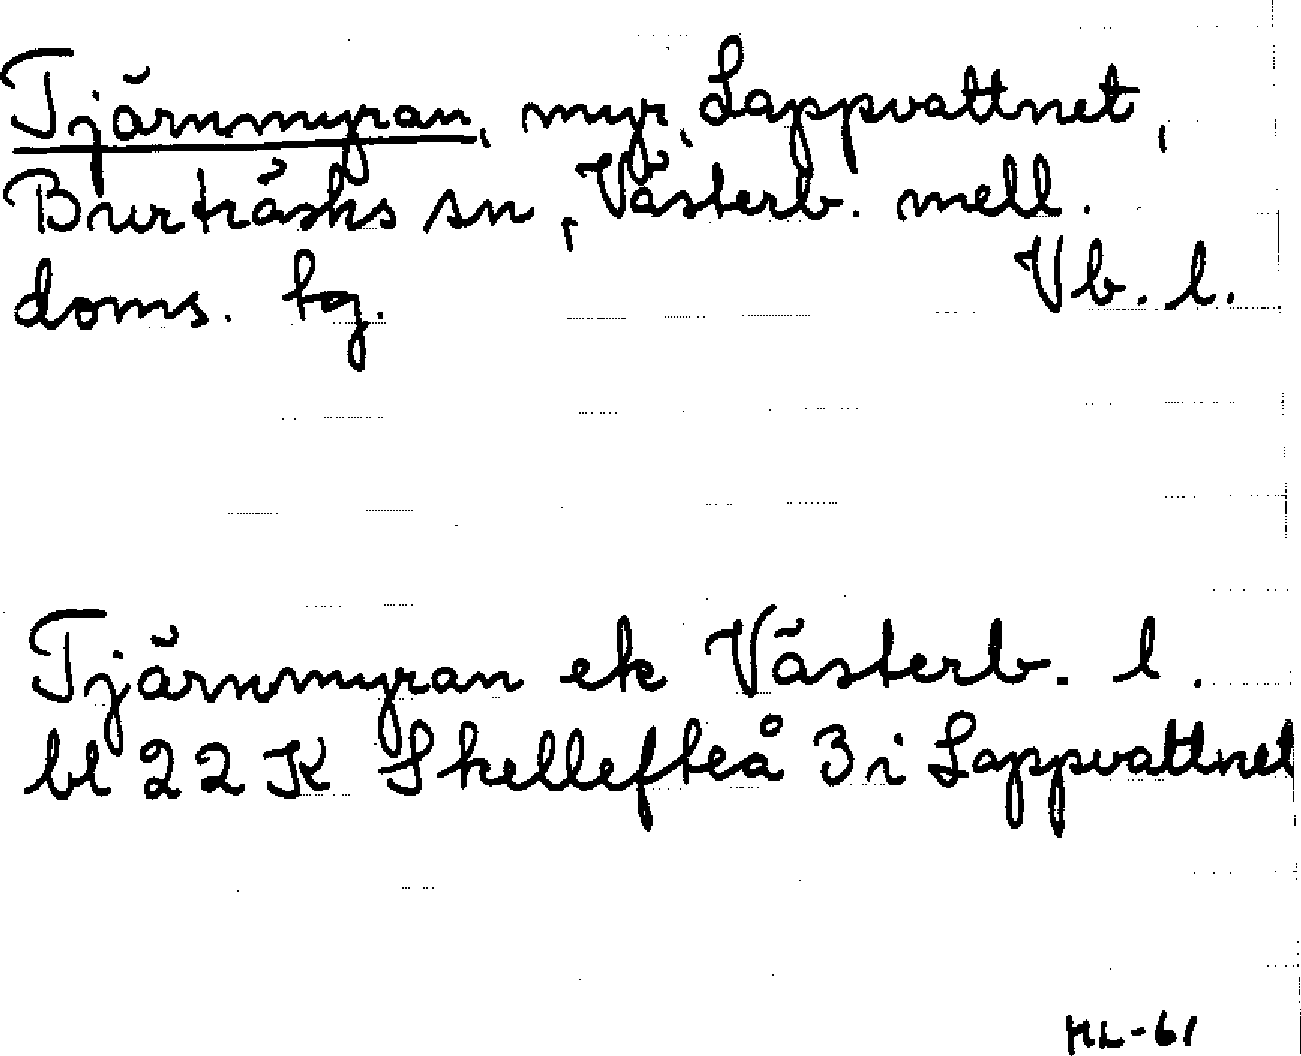 Tjärnmyran, myr, Lappvattnet,
Burträsks sn, Västerb. mell.
doms. hg. Vb. l.
Tjärnmyran ek Västerb. l.
bl 22 K Skellefteå 3 i Lappvattnet
HL-61